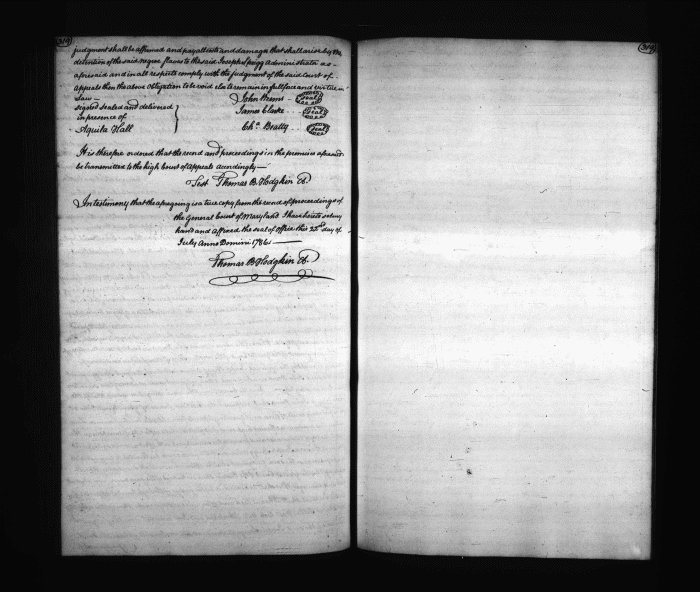 319
319
judgment shall be affirmed and pay all costs and damages that shall arise by the
detention of the said negroe slaves to the said Joseph Sprigg Administrator as
aforesaid and in all respects comply with the judgment of the said Court of
Appeals then the above Obligation to be void else to remain in full force and virtue in
Law —
signed sealed and delivered
in presence of
Aquila Hall
John Weems -- (Seal)
James Clarke --- (Seal)
Chs. Beatty --- (Seal)
It is therefore ordered that the record and proceedings in the premises aforesaid
be transmitted to the high Court of Appeals accordingly —
Test Thomas B. Hodgkin Ct.
In testimony that the aforegoing is a true copy from the record of proceedings of
the General Court of Maryland I have hereto set my
hand and affixed the seal of office this 22d day of
July Anno Domini 1786 —
Thomas B. Hodgkin Ct.